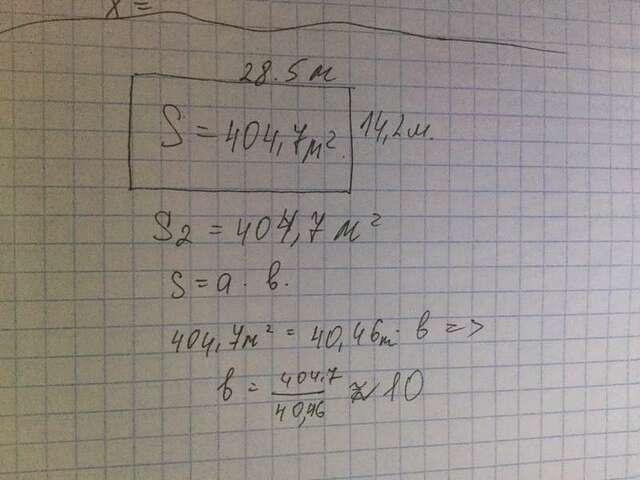 x =
28.5 м
S = 404,7 м². 14,2 м.
S2 = 404,7 м²
S = a · в.
404,7 м² = 40,46 m · в =>
в = 404.7 / 40,46 ≈ 10